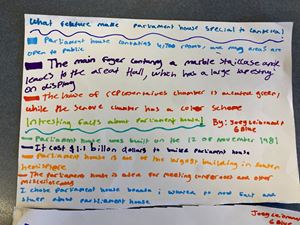 What feature make parliament house special to canberra!
Parliament house contatins 4,700 rooms, and many areas are
open to public
The main foyer contaning a marble staircase and
leads to the Great Hall, which has a large tapestry
on display
The house of representatives chamber is muatee green,
while the senate chamber has a color scheme
Intresting facts about parliament house! By: Joey
6 Blue
parliament house was built on the 12 of november 1981
It cost $1.1 billon dollars to builed parliament house
parliament house is one of the largest building in
hemisphere
The parliament house is also for meeting confrences and other
I chose parliament house
about parliament house
Joey
6 Blue